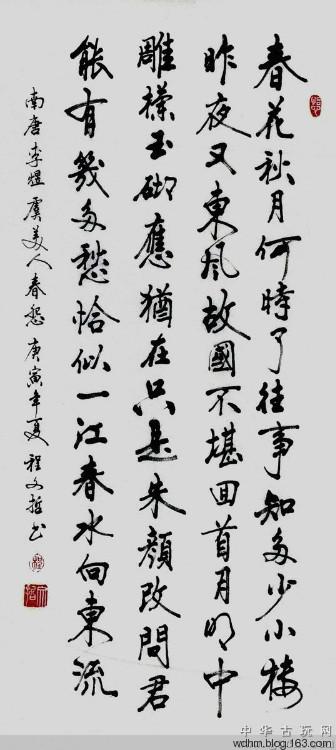 春花秋月何時了往事知多少小樓
昨夜又東風故國不堪回首月明中
雕欄玉砌應猶在只是朱顏改問君
能有幾多愁恰似一江春水向東流
南唐李煜虞美人春怨 庚寅年夏 程文哲书
中华古玩网
wdhm.blog.163.com